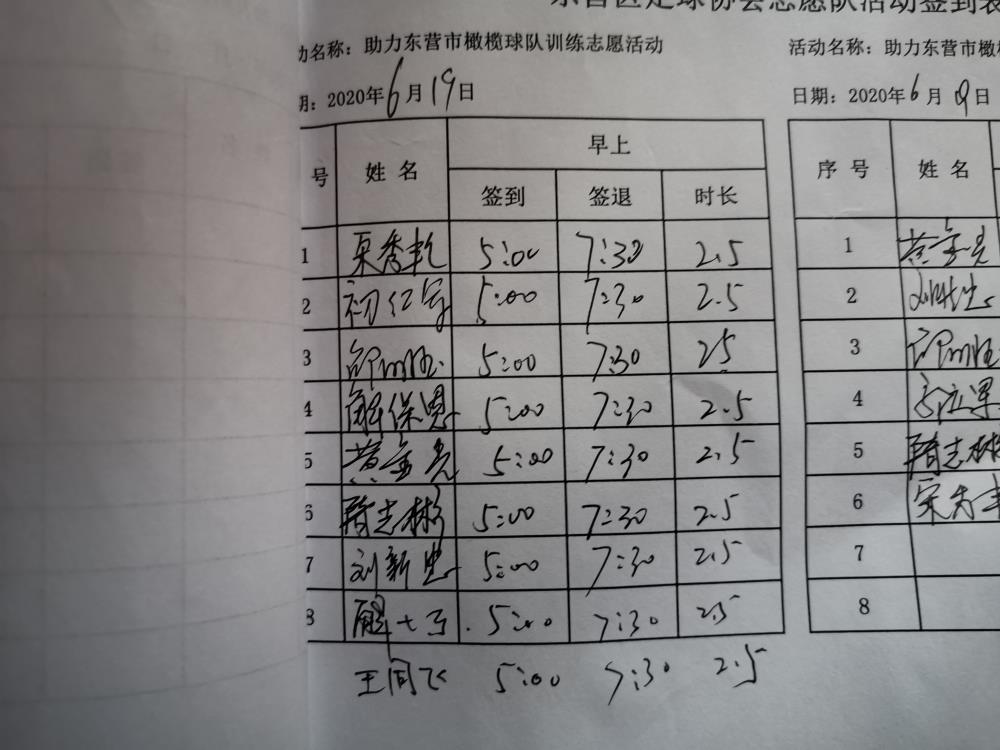 东营区足球协会志愿队活动签到表
动名称：助力东营市橄榄球队训练志愿活动
期：2020年6月19日
号 姓名 早上
签到 签退 时长
1 5:00 7:30 2.5
2 5:00 7:30 2.5
3 5:00 7:30 25
4 解保恩 5:00 7:30 2.5
5 黄金亮 5:00 7:30 2.5
6 隋志彬 5:00 7:30 2.5
7 刘新忠 5:00 7:30 2.5
8 5:00 7:30 2.5
王同飞 5:00 7:30 2.5
活动名称：助力东营市橄
日期：2020年6月 日
序号 姓名
1 黄金亮
2
3
4
5 隋志彬
6
7
8